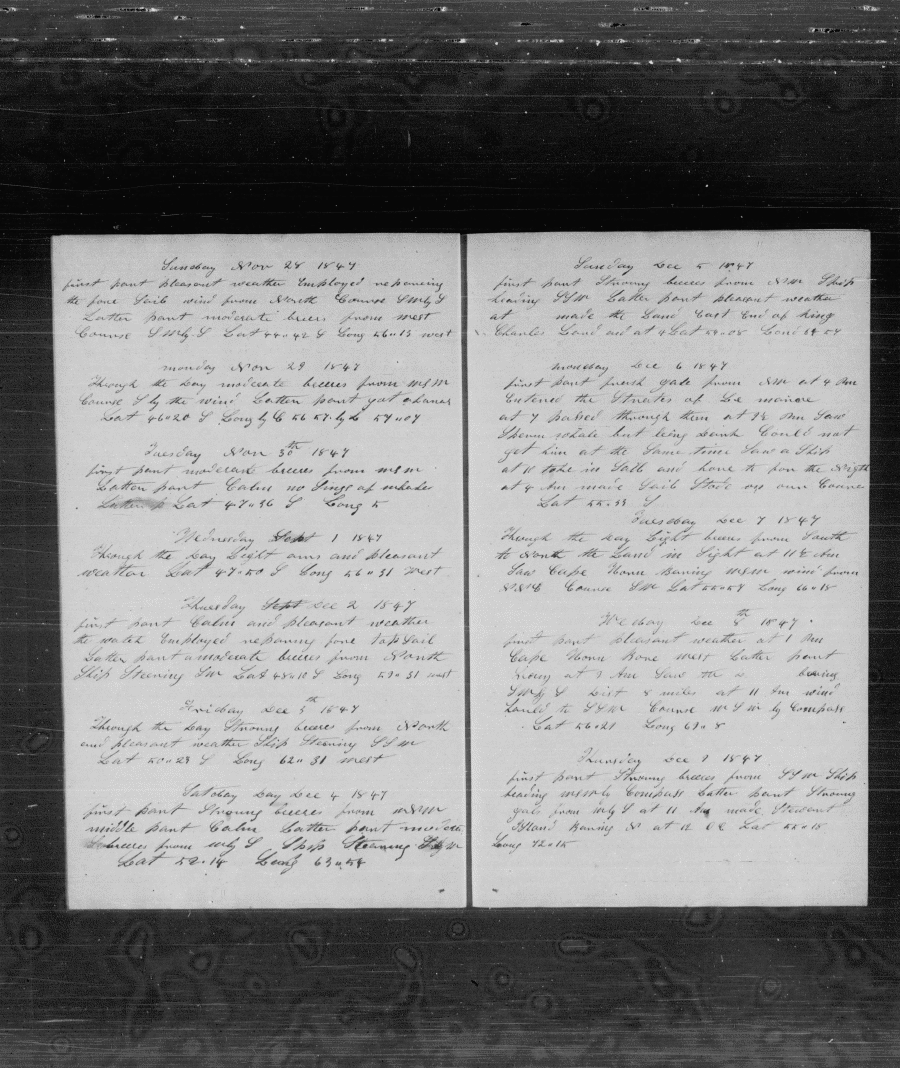 Sunday Nov 28 1847
first part pleasant weather Employed reparing
the fore Sail wind from North Course SWbyS
Latter part moderate brees from west
Course SWbyS Lat 44"42 S Long 56"13 west
monday Nov 29 1847
Through the Day moderate breeses from WSW
Course S by the wind Latter part
Lat 46"20 S Long by C 56 57
Tuesday Nov 30th 1847
first part moderate breeses from WSW
Latter part Calm no Sings of whales
Lat 47"36 S Long 5
Wednesday Sept 1 1847
Through the Day Light airs and pleasant
weather Lat 47"50 S Long 56"31 West
Thuesday Sept Dec 2 1847
first part Calm and pleasant weather
the watch Employed reparing fore topSail
Latter part a moderate breeses from North
Ship Steering SW Lat 48"10 S Long 59"31 west
Friday Dec 3th 1847
Through the Day Strong breeses from North
and pleasant weather Ship Steering SSW
Lat 50"29 S Long 62"31 west
Satoday Day Dec 4 1847
first part Strong breeses from NNW
middle part Calm Latter part moderate
breeses from WbyS Ship Stearing SbyW
Lat 52"18 Long 63"58
Sunday Dec 5 1847
first part Strong breeses from NW Ship
heading SSW Latter part pleasant weather
at made the Land East End of
Land
monday Dec 6 1847
first part fresh gale from NW at 4 Am
Entered the Strates of Le maire
at 7 passed through them at 9½ Am Saw
Sperm whale but being Could not
get him at the Same time Saw a Ship
at 10 toke in Sail and hove to for the Nigth
at 4 Am made Sail Stode on our Course
Lat 55"33 S
Tuesday Dec 7 1847
Through the day Light brees from South
to North the Land in Sight at 11½ Am
Saw Cape Horn Baring WSW wind from
NNE Course SW Lat 55"59 Long 66"18
Wesday Dec 8th 1847
first part pleasant weather at 1 Am
Cape Horn Bore west Latter part
at 9 Am Saw the bearing
SWbyS Dist 8 miles at 11 Am wind
hauld to SSW Course WSW by Compass
Lat 56"21 Long 69"8
Thursday Dec 9 1847
first part Strong breeses from SSW Ship
heading by Compass Latter part Strong
gale from WbyS at 11 Am made Stewart
Island Baring N at 12 Lat 55"15
Long 72"15